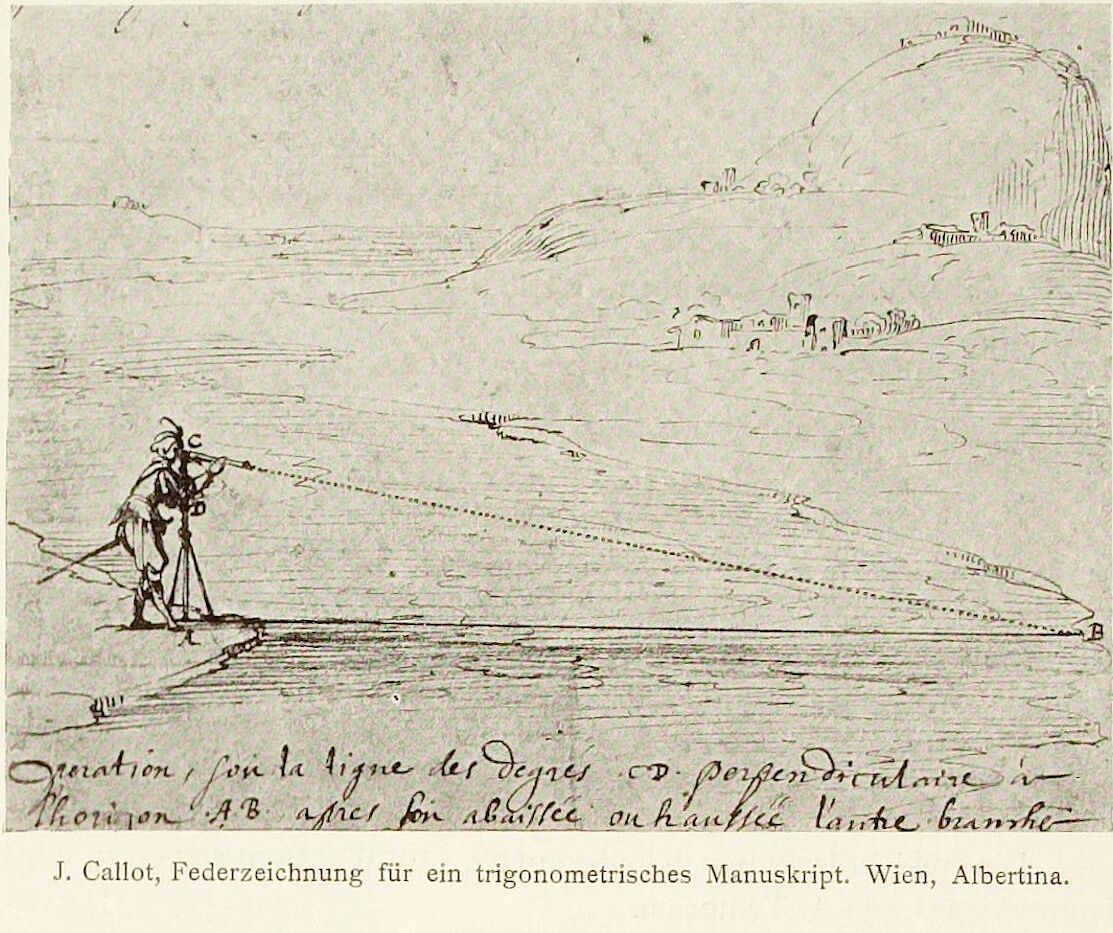 C
D
A
B
Operation, sou la ligne des degres .CD. perpendiculaire à
l'horizon .A B. apres son abaissée ou haussée l'autre branche
J. Callot, Federzeichnung für ein trigonometrisches Manuskript. Wien, Albertina.